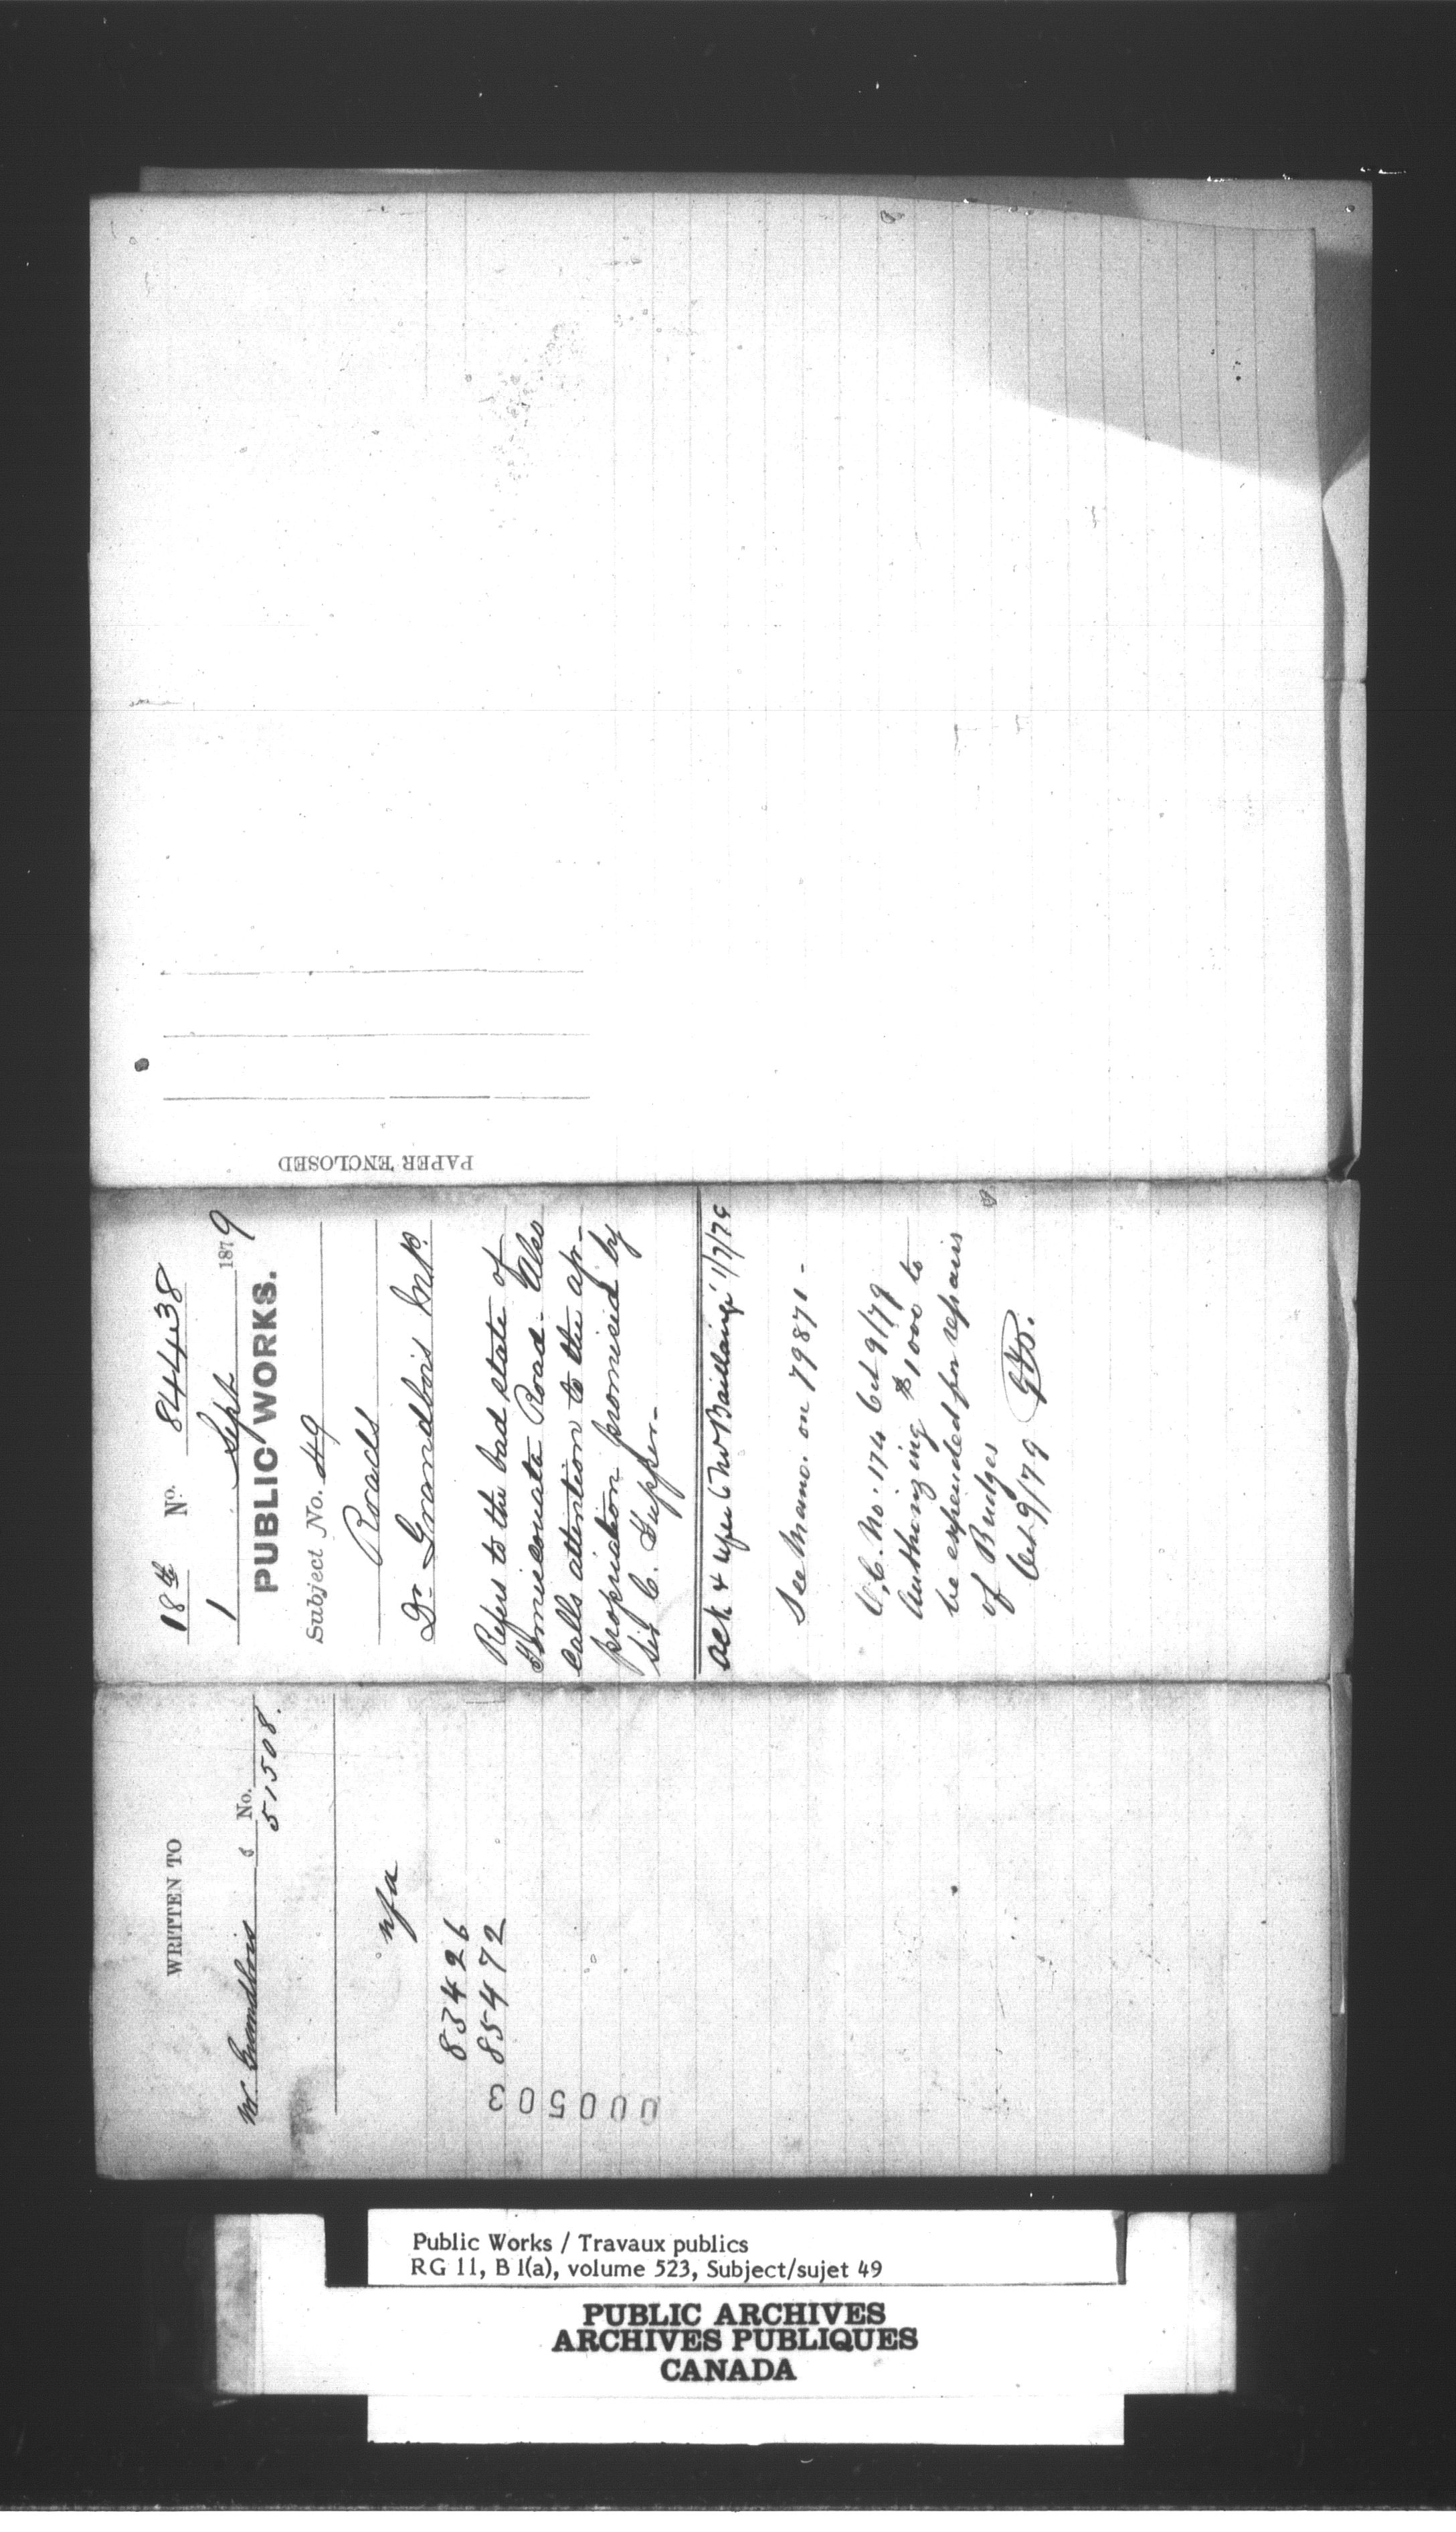 PAPER ENCLOSED
18th No. 84438
1 Sept 1879
PUBLIC WORKS.
Subject No. 49
Roads
Dr Grandbois M.P.
Refers to the bad state of
Temiscouata Road. Also
calls attention to the ap-
propriation promised by
Sir C. Tupper-
ack & Baillairgé
See Memo. on 79871 -
O.C. No. 174 Oct 9/79
Authorizing $1000 to
be expended for repairs
of Bridges
Oct 9/79
WRITTEN TO
Grandbois No.
51508.
nfa
83426
85472
000503
Public Works / Travaux publics
RG 11, B 1(a), volume 523, Subject/sujet 49
PUBLIC ARCHIVES
ARCHIVES PUBLIQUES
CANADA